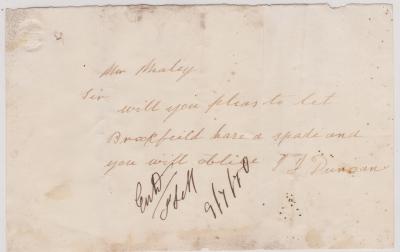 Mr Mealey
Sir
will you pleas to let
Brookfeild have a spade and
you will oblige T J Duncan
Entd
9/7/70